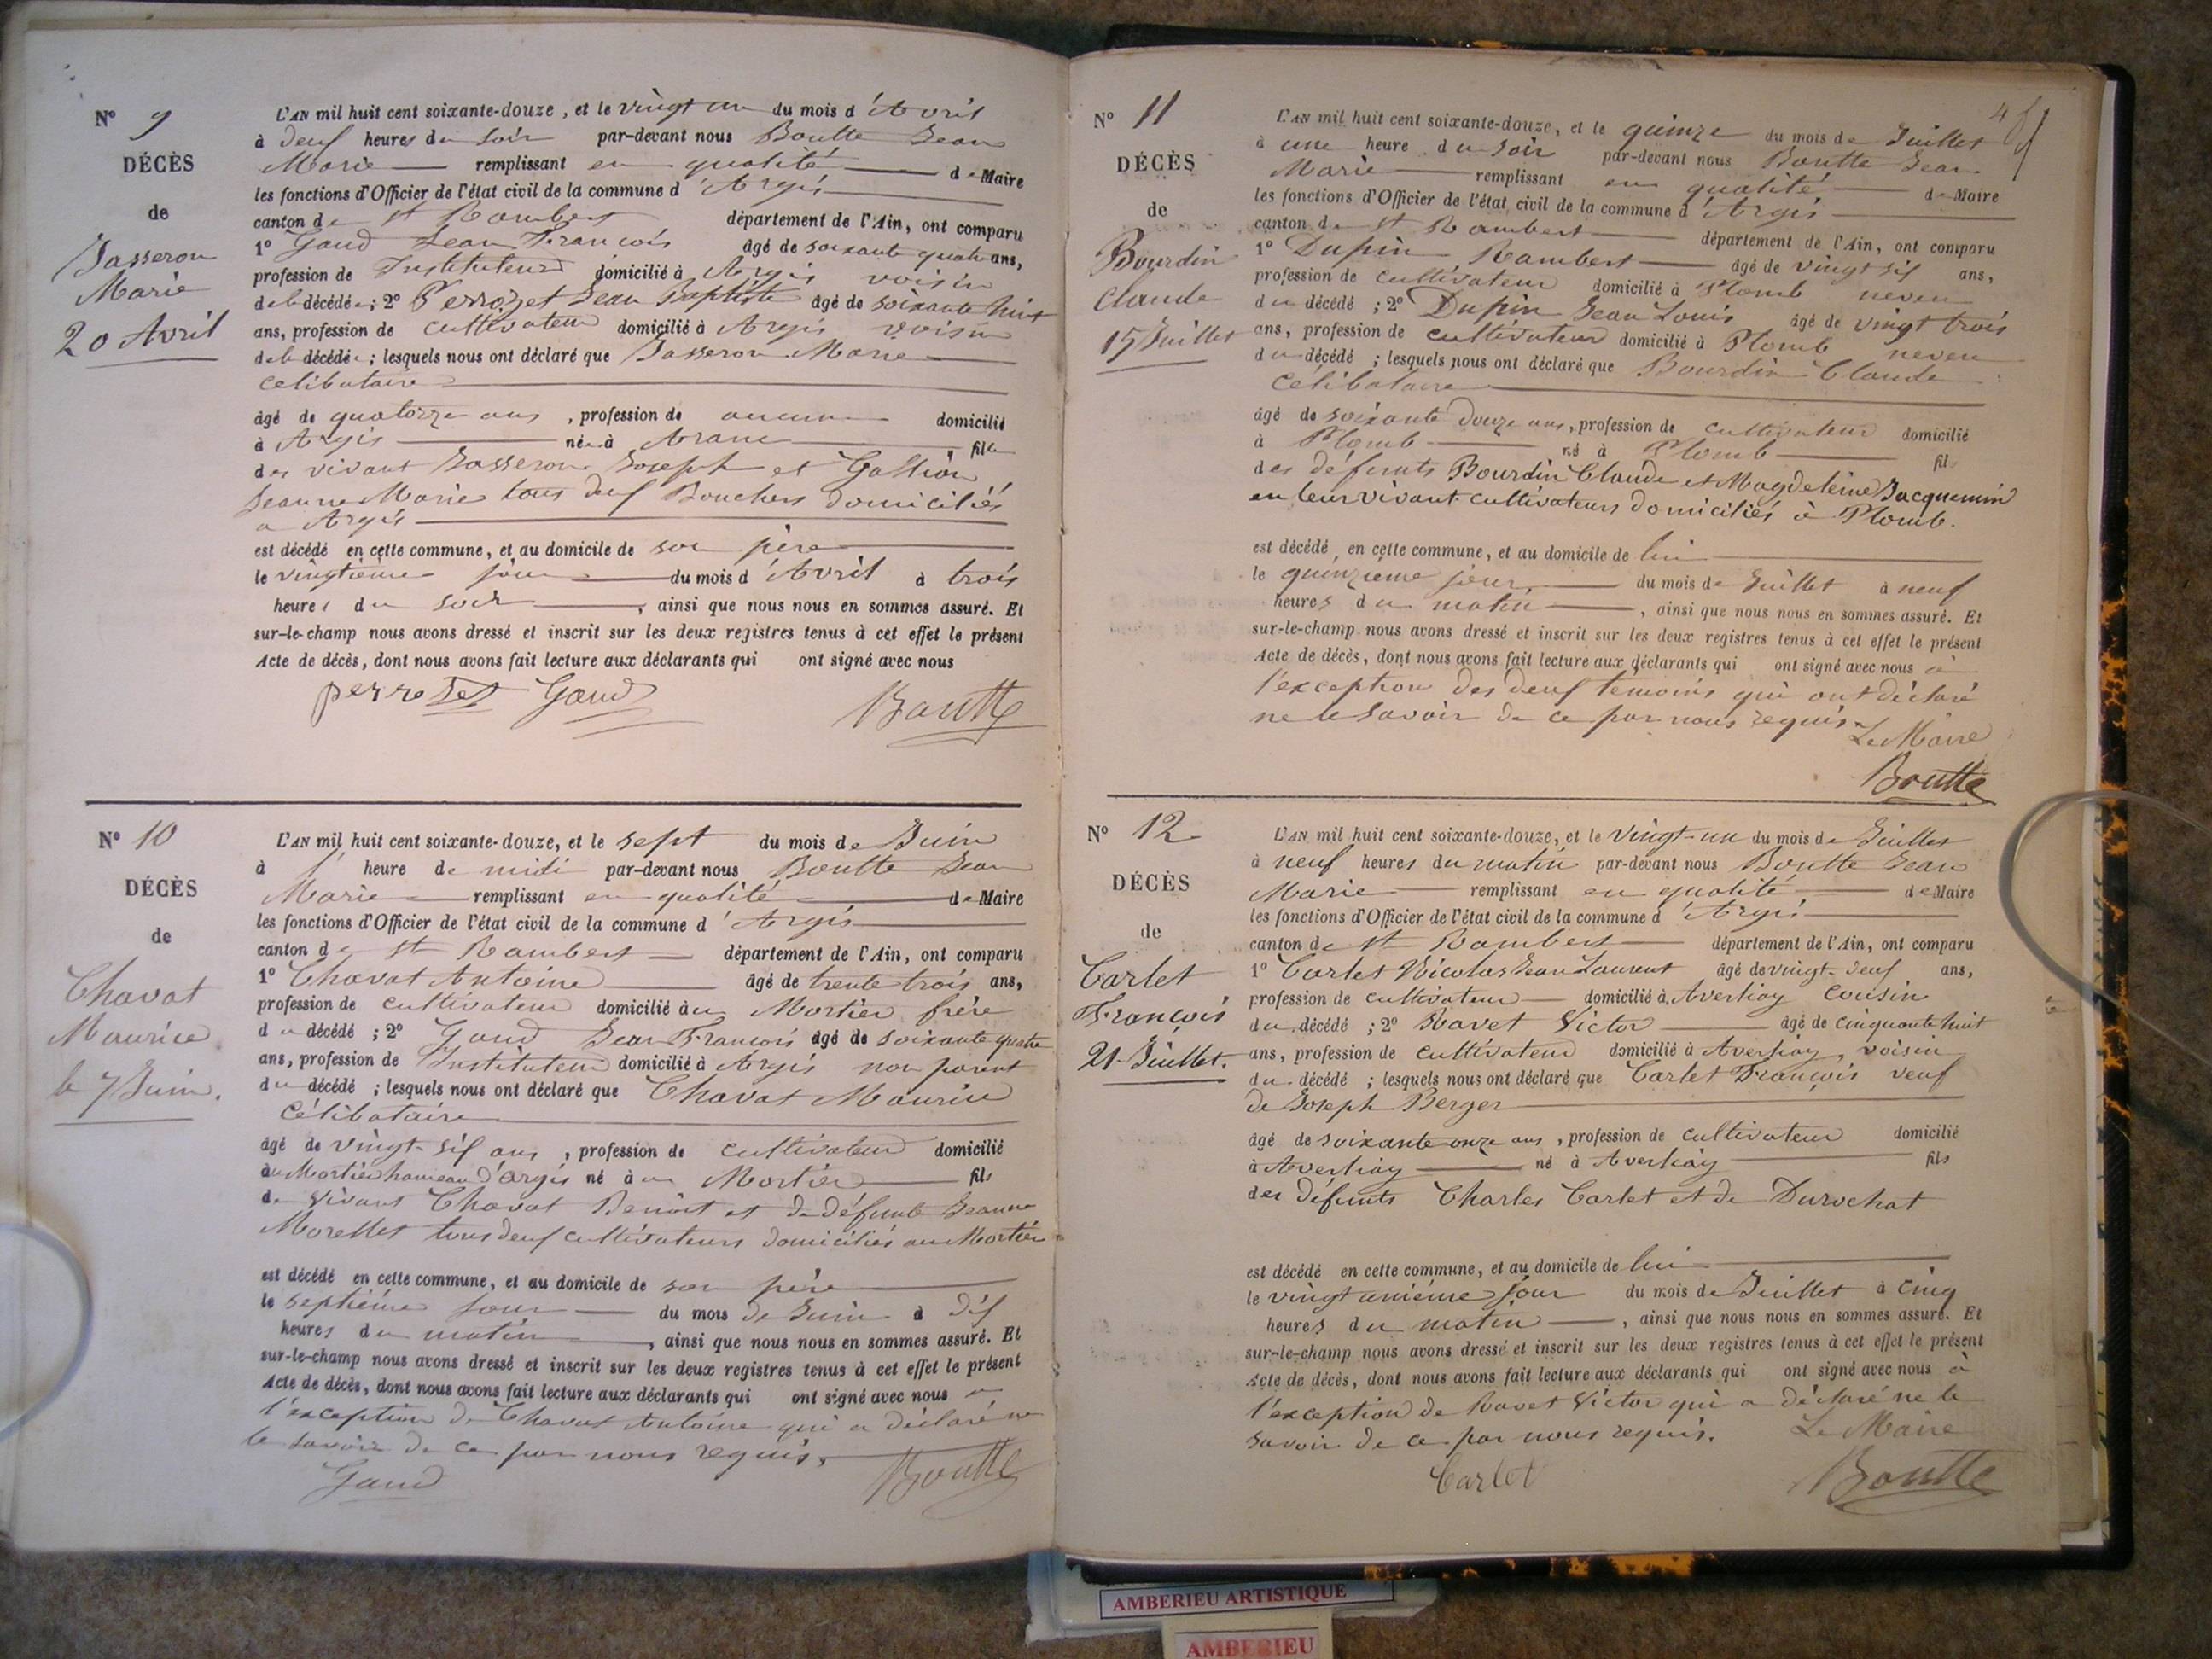 N° 9
DÉCÈS
de
Jasseron
Marie
20 Avril
L'AN mil huit cent soixante-douze, et le vingt un du mois d'Avril
à deux heures du soir par-devant nous Boutte Jean
Marie remplissant en qualité de Maire
les fonctions d'Officier de l'état civil de la commune d'Argis
canton de St Rambert département de l'Ain, ont comparu
1° Gaud Jean François âgé de soixante quatre ans,
profession de Instituteur domicilié à Argis voisin
de la décédée; 2° Perrozet Jean Baptiste âgé de soixante huit
ans, profession de cultivateur domicilié à Argis voisin
de la décédée; lesquels nous ont déclaré que Jasseron Marie
célibataire
âgé de quatorze ans, profession de aucune domicilié
à Argis née à Aranc fille
des vivant Jasseron Joseph et Gallion
Jeanne Marie tous deux Bouchers domiciliés
a Argis
est décédé en cette commune, et au domicile de son père
le vingtième jour du mois d'Avril à trois
heures du soir, ainsi que nous nous en sommes assuré. Et
sur-le-champ nous avons dressé et inscrit sur les deux registres tenus à cet effet le présent
Acte de décès, dont nous avons fait lecture aux déclarants qui ont signé avec nous
perrozet Gaud Boutte
N° 10
DÉCÈS
de
Chavat
Maurice
le 7 Juin.
L'AN mil huit cent soixante-douze, et le sept du mois de Juin
à l'heure de midi par-devant nous Boutte Jean
Marie remplissant en qualité de Maire
les fonctions d'Officier de l'état civil de la commune d'Argis
canton de St Rambert département de l'Ain, ont comparu
1° Chavat Antoine âgé de trente trois ans,
profession de cultivateur domicilié au Mortier frère
du décédé; 2° Gaud Jean François âgé de soixante quatre
ans, profession de Instituteur domicilié à Argis non parent
du décédé; lesquels nous ont déclaré que Chavat Maurice
Célibataire
âgé de vingt-six ans, profession de cultivateur domicilié
au Mortier hameau d'argis né au Mortier fils
de vivant Chavat Benoit et de défunte Jeanne
Morellet tous deux cultivateurs domiciliés au Mortier
est décédé en cette commune, et au domicile de son père
le septième jour du mois de Juin à dix
heures du matin, ainsi que nous nous en sommes assuré. Et
sur-le-champ nous avons dressé et inscrit sur les deux registres tenus à cet effet le présent
Acte de décès, dont nous avons fait lecture aux déclarants qui ont signé avec nous a
l'exception de Chavat Antoine qui a déclaré ne
le savoir de ce par nous requis.
Gaud Boutte
N° 11
DÉCÈS
de
Bourdin
Claude
15 Juillet
L'AN mil huit cent soixante-douze, et le quinze du mois de Juillet
à une heure du soir par-devant nous Boutte Jean
Marie remplissant en qualité de Maire
les fonctions d'Officier de l'état civil de la commune d'Argis
canton de St Rambert département de l'Ain, ont comparu
1° Dupin Rambert âgé de vingt six ans,
profession de cultivateur domicilié à Plomb neveu
du décédé; 2° Dupin Jean Louis âgé de vingt trois
ans, profession de cultivateur domicilié à Plomb neveu
du décédé; lesquels nous ont déclaré que Bourdin Claude
célibataire
âgé de soixante douze ans, profession de cultivateur domicilié
à Plomb né à Plomb fils
des défunts Bourdin Claude et Magdeleine Jacquemin
en leur vivant cultivateurs domiciliés à Plomb.
est décédé en cette commune, et au domicile de lui
le quinzième jour du mois de Juillet à neuf
heures du matin, ainsi que nous nous en sommes assuré. Et
sur-le-champ nous avons dressé et inscrit sur les deux registres tenus à cet effet le présent
Acte de décès, dont nous avons fait lecture aux déclarants qui ont signé avec nous à
l'exception des deux témoins qui ont déclaré
ne le savoir de ce par nous requis.
Le Maire
Boutte
N° 12
DÉCÈS
de
Carlet
François
21 Juillet.
L'AN mil huit cent soixante-douze, et le vingt-un du mois de Juillet
à neuf heures du matin par-devant nous Boutte Jean
Marie remplissant en qualité de Maire
les fonctions d'Officier de l'état civil de la commune d'Argis
canton de St Rambert département de l'Ain, ont comparu
1° Carlet Nicolas Jean Laurent âgé de vingt-deux ans,
profession de cultivateur domicilié à Averliay cousin
du décédé; 2° Ravet Victor âgé de cinquante huit
ans, profession de cultivateur domicilié à Averliay, voisin
du décédé; lesquels nous ont déclaré que Carlet François veuf
de Joseph Berger
âgé de soixante onze ans, profession de cultivateur domicilié
à Averliay né à Averliay fils
des défunts Charles Carlet et de Durochat
est décédé en cette commune, et au domicile de lui
le vingt unième jour du mois de Juillet à cinq
heures du matin, ainsi que nous nous en sommes assuré. Et
sur-le-champ nous avons dressé et inscrit sur les deux registres tenus à cet effet le présent
Acte de décès, dont nous avons fait lecture aux déclarants qui ont signé avec nous à
l'exception de Ravet Victor qui a déclaré ne le
savoir de ce par nous requis. Le Maire
Carlet Boutte
AMBERIEU ARTISTIQUE
AMBERIEU